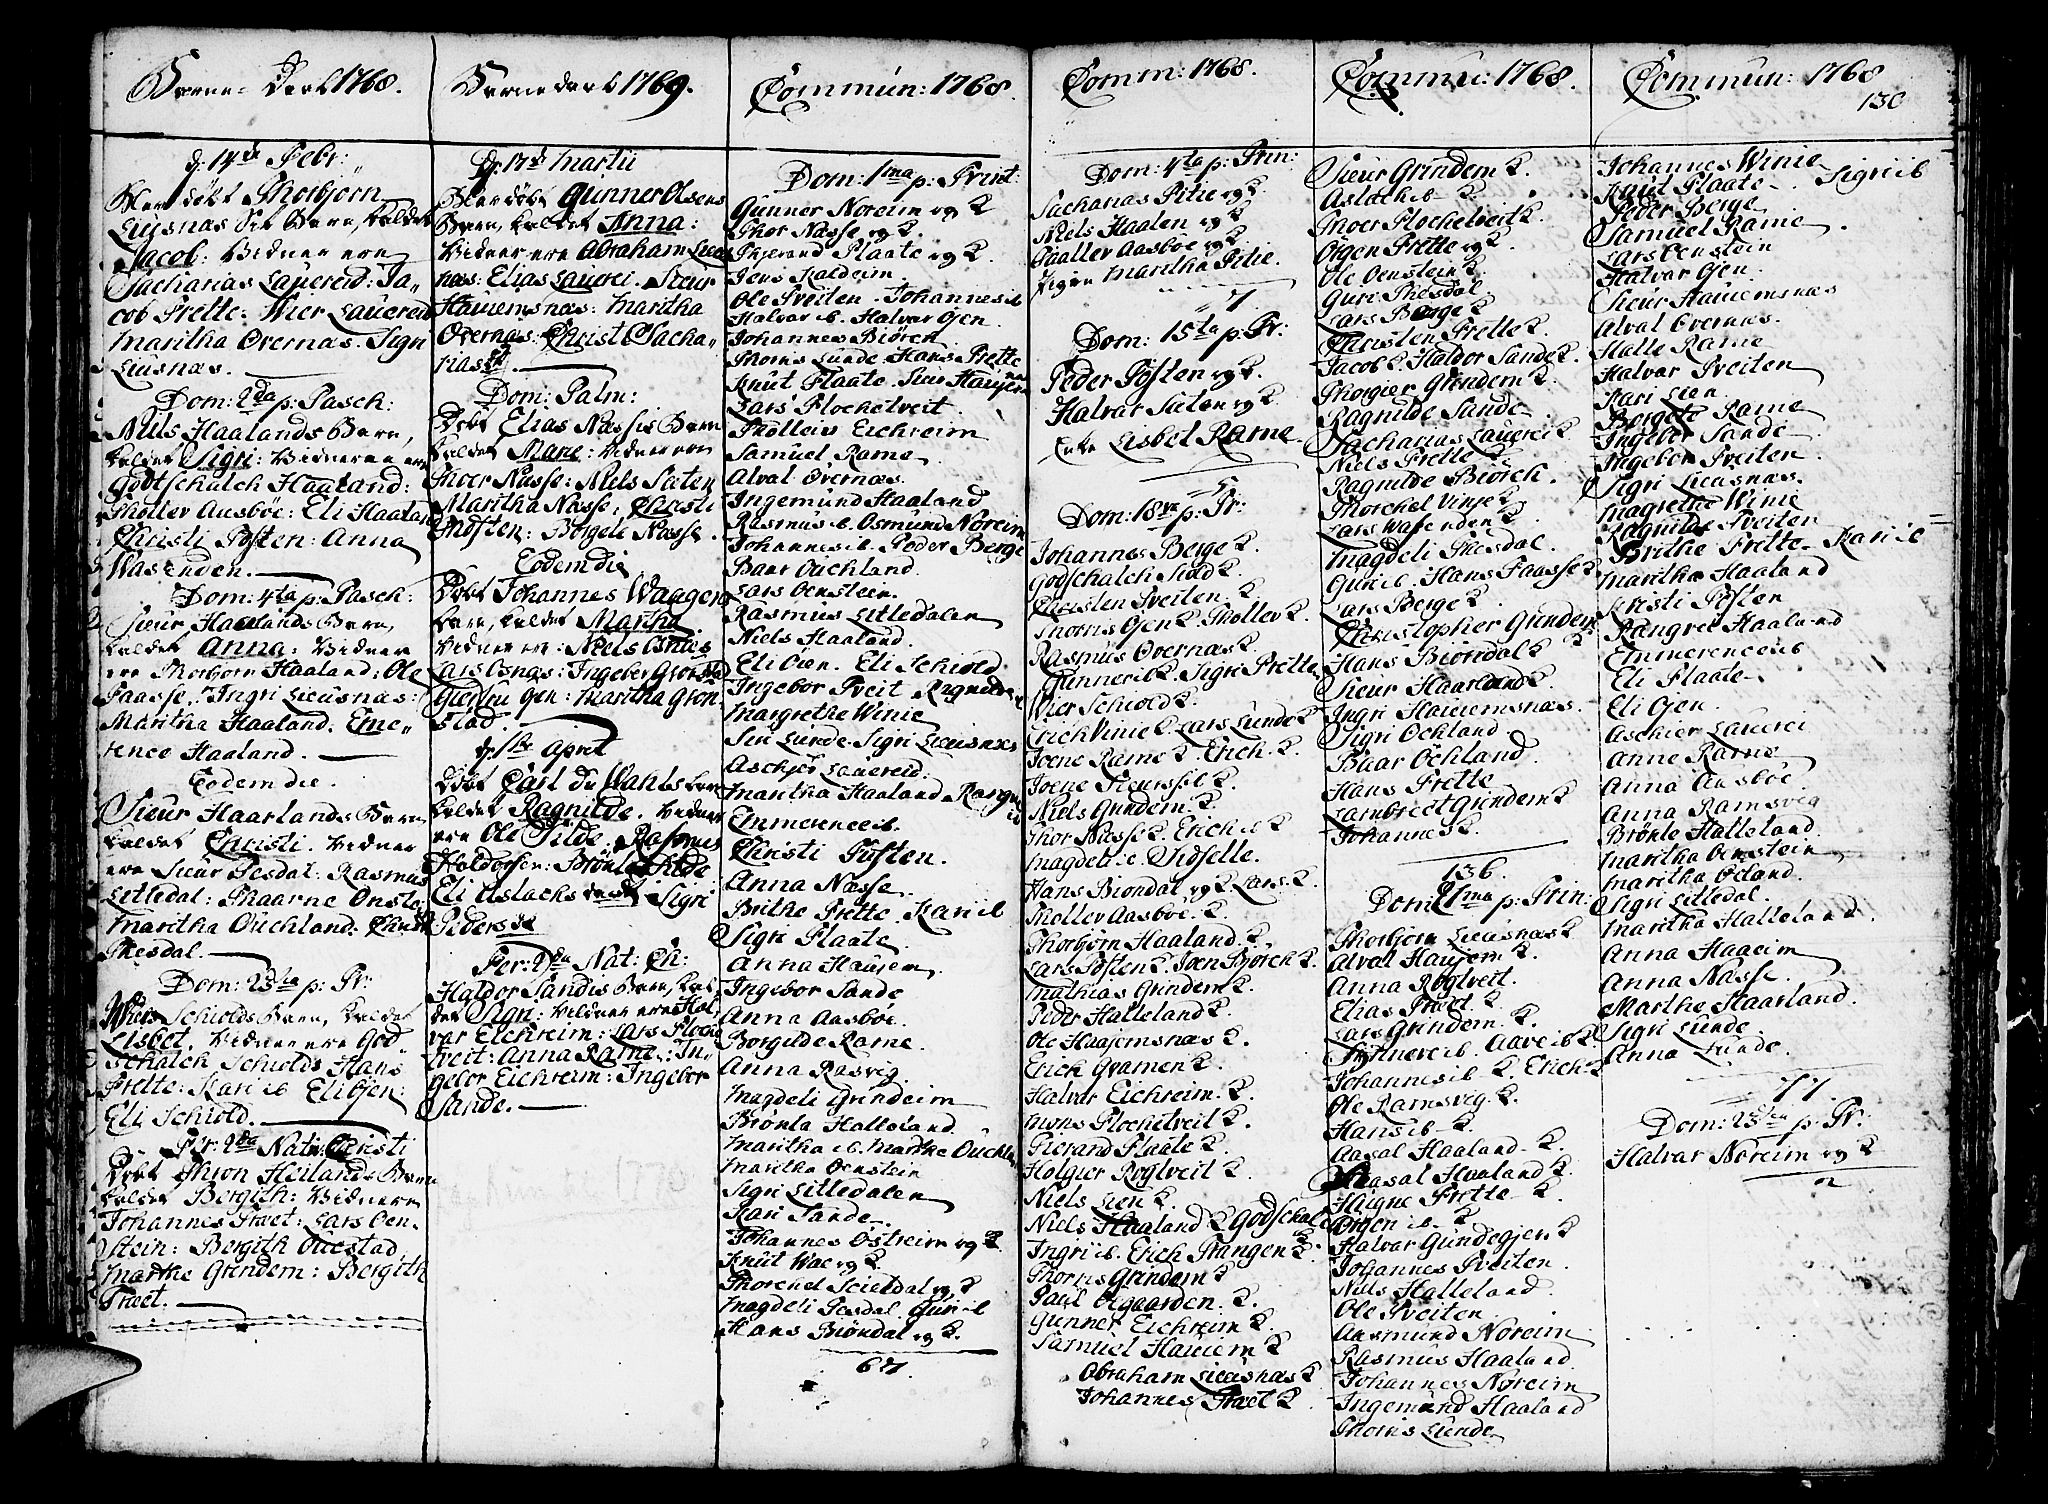 Børne-Daab 1768.
d: 14de Febr:
blev døbt Thorbjørn
Liusnas Sit Barn, kaldet
Jacob: Vidner ere
Zacharias Lauereid: Ja-
cob Prette: Wier Lauereid
Maritha Overnas. Sigri
Liusnæs.
Dom: 2da p: Pasch:
Niels Haalands Barn,
kaldet Sigri: Vidnerne ere
Godtschalch Haaland:
Thollev Aasböe: Eli Haaland
Christi Pösten: Anna
Wasenden.
Dom: 4ta p: Pasch:
Siur Haalands Barn,
kaldet Anna: Vidner
ere Thorborn Haaland: Ole
Faasse: Ingri Lieusnas:
Maritha Haaland: Eme-
rence Haaland.
Eodem die.
Siur Haarlands Barn
kaldet Christi. Vidner
ere Siur Tesdal: Rasmus
Litledal: Thaarne Onsta
Maritha Ouchland: Christi
Thesdal.
Dom: 23tia p: Tr:
Wiers Schiolds Barn, kaldet
Lisbet. Vidner ere God
Schalch Schiolds Hans
Prette: Kari ib Eli Ojen:
Eli Schiold.
Fer: 2da Nativ: Christi
Døbt Thron Heilands Barn
kaldet Bergith: Vidner
Johannes Træt: Lars Oen-
stein: Bergith Ouestad
Marthe Grindem: Bergith
Træt.
Børnedaab 1769.
D: 17d Martii
blev døbt Gunner Olsens
Barn, kaldet Anna:
Vidner ere Abraham Lieus
nas: Elias Lauerei. Siur
Hauemsnæs: Maritha
Overnas: Christi Zacha-
rias dr.
Dom: Palm:
Døbt Elias Næssis Barn
kaldet Mari: Vidner ere
Thoer Nasse: Niels Saten
Maritha Næsse, Christi
Pösten: Borgele Nasse.
Eodem die
Døbt Johannes Waagens
barn, kaldet Martha
Vidner ere: Niels
Lars Osnas: Ingebor Gronstad
Guru Ojen: Maritha Gron-
stad.
d: april
Døbt Carl du Wahls barn
kaldet Ragnilde. Vidner
ere Ole Tilde, Rasmus
Haldorsen: Brønla Tilde
Eli Aslachs datt Sigri
Peders dr
Fer: 2da Nat: Ch:
Haldor Sandes Barn, kal-
det Sigri: Vidner ere Hal-
var Eichreim: Lars Ploche
tveit: Anna Rame: In-
gebor Eichreim: Ingebor
Sande.
Commun: 1768.
Dom: 1ma p: Trint:
Gunner Noreim og K
Thor Nasse og K.
Thierand Flaate og K.
Jens Kaldeim.
Ole Tveiten. Johannes ib
Halvar ib. Halvar Ojen.
Johannes Biörch
Thoms Lunde. Hans Prette
Knut Flaate. Siur Haujem
Lars Plochetveit.
Tholleis Eichreim
Samuel Rame
Alval Overnæs.
Ingemund Haaland
Rasmus ib. Osmund Noreim
Johannes ib. Peder Berge
Baar Ouchland.
Lars Oenstein.
Rasmus Litledalen
Niels Haaland.
Eli Ojen. Eli Schiold
Ingebor Tveit Ragnilde
Margrethe Winie
Siri Lunde. Sigri Lieusnæs
Aschjer Lauereid.
Maritha Haaland. Rangri ib
Emmerence ib.
Christi Pösten.
Anna Næsse.
Brithe Prette. Kari ib
Sigri Flaate.
Anna Haujem
Ingebor Sande
Anna Aasböe.
Borgilde Rame.
Anna Rasvig.
Magdeli Grindeim
Brönla Halleland.
Maritha ib. Marthe Ouchlan
Maritha Oenstein
Sigri Litledalen
Kari Sande.
Johannes Ostreim og K.
Knut Wae og K
Thorchel Scieldal og K
Magdeli Tesdal Guri ib
Hans Biöndal og K.
67.
Comm: 1768.
Dom: 4ta p: Trin:
Zacharias Pitie og K
Niels Haalen og K
Thollev Aasböe og K
Pigen Maritha Pitie.
7
Dom: 15ta p: Tr:
Peder Pösten og K.
Halvar Saten og K.
Enke Lisbet Rame
5.
Dom: 18va p: Tr:
Johannes Berge K.
Godschalch Siold K.
Christen Tveiten. K.
Thomis Ojen K. Thollev K.
Rasmus Overnæs K.
Gunner ib K. Sigri Prette
Wier Schiold K.
Erich Vinie K. Lars Lunde K
Joene Rame K. Erich. K.
Joene K.
Niels Grindem. K.
Thor Næsse K. Erich ib K
Magdeli ib. Sidselle.
Hans Biöndal og K. Lars. K.
Thollev Aasböe. K.
Thorbjörn Haaland. K.
Lars Pösten K. Joen Biörch K.
Mathias Grindem K.
Peder Halleland K.
Ole Haajemsnæs K.
Erich Gramen K.
Halvar Eichreim. K.
Mons Plochetveit K.
Thierand Flaate K.
Holgier Röglveit K.
Niels Lien K.
Niels Haaland K Godschalc
Ingri ib. Erich Prangen K.
Thoms Grindem K
Paul Öegaarden. K.
Gunner Eichreim K.
Samuel Hauem K
Abraham Lieusnæs K
Johannes Træt K.
Commu: 1768.
Sieur Grindem K.
Aslach ib K
Thoer Plochetveit K
Oigen Prette og K.
Ole Oenstein K
Guri Thesdal.
Lars Berge K
Christen Prette K.
Jacob K. Haldor Sande K.
Thorgier Grindem K.
Ragnilde Sande.
Zacharias Lauerei K
Niels Prette K
Ragnilde Biörch.
Thorchel Vinje K
Lars Wasenden K
Magdeli Thesdal.
Guri ib. Hans Faasse K.
Lars Berge K.
Christopher Grindem K
Hans Biöndal K
Sieur Haarland K.
Ingri Hauemsnæs.
Sigri Ochland
Baar Ochland.
Hans Prette
Lambrect Grindem K
Johannes K.
136.
Dom: 21ma p: Trin:
Thorbjörn Lieusnæs K
Alval Haujem K.
Anna Röglveit.
Elias Træet K
Lars Grindem. K.
Gunner ib. Aave ib K
Johannes ib K. Erich K
Ole Ramsvig K.
Hans ib K.
Aasal Haaland K.
Aasal Haaland K
Heigne Prette K.
Örgen ib. K
Halvar Gundegjer K
Johannes Tveiten.
Niels Halleland.
Ole Tveiten.
Aasmund Noreim
Rasmus Haaland.
Johannes Noreim
Ingemund Haaland
Thomis Lunde
Commun: 1768
130
Johannes Winie
Knut Flaate. Sigri ib
Peder Berge
Samuel Rame.
Lars Oenstein
Halvar Ojen.
Sieur Hauemsnæs
Alval Overnæs.
Halle Rame
Halvar Tveiten
Kari Lien.
Bergete Rame
Ingebor Sande.
Ingebor Tveiten.
Sigri Lieusnæs.
Magrethe Winie
Ragnilde Tveiten
Brithe Prette. Kari ib
Maritha Haaland
Kristi Pösten
Rangri Haaland
Emmerence ib
Eli Flaate.
Eli Ojen.
Aschier Lauerei
Anne Rame
Anna Aasböe.
Anna Ramsvig
Brönle Halleland.
Maritha Oenstein
Maritha Ocland.
Sigri Litledal.
Maritha Halleland.
Anna Haaeim
Anna Nasse.
Marthe Haarland.
Sigri Lunde.
Anna Lunde.
77
Dom: 23tia p: Tr:
Halvar Noreim og K
2